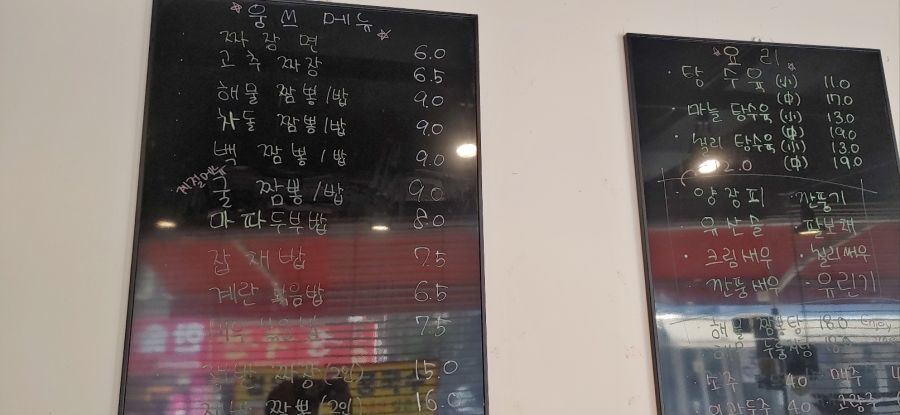 웅's 메뉴
짜장면 6.0
고추 짜장 6.5
해물 짬뽕/밥 9.0
차돌 짬뽕/밥 9.0
백 짬뽕/밥 9.0
계절메뉴
굴 짬뽕/밥 9.0
마파두부밥 8.0
잡채밥 7.5
계란 볶음밥 6.5
볶음밥 7.5
짜장(2인) 15.0
짬뽕(2인) 16.0
요리
탕수육 (小) 11.0
(中) 17.0
마늘 탕수육 (小) 13.0
(中) 19.0
칠리 탕수육 (小) 13.0
(中) 19.0
양장피 · 깐풍기
유산슬 · 팔보채
크림새우 · 칠리새우
깐풍새우 · 유린기
해물 짬뽕탕 18.0
해물 누룽지탕
소주 4.0 맥주
이과두주 4.0 고량주